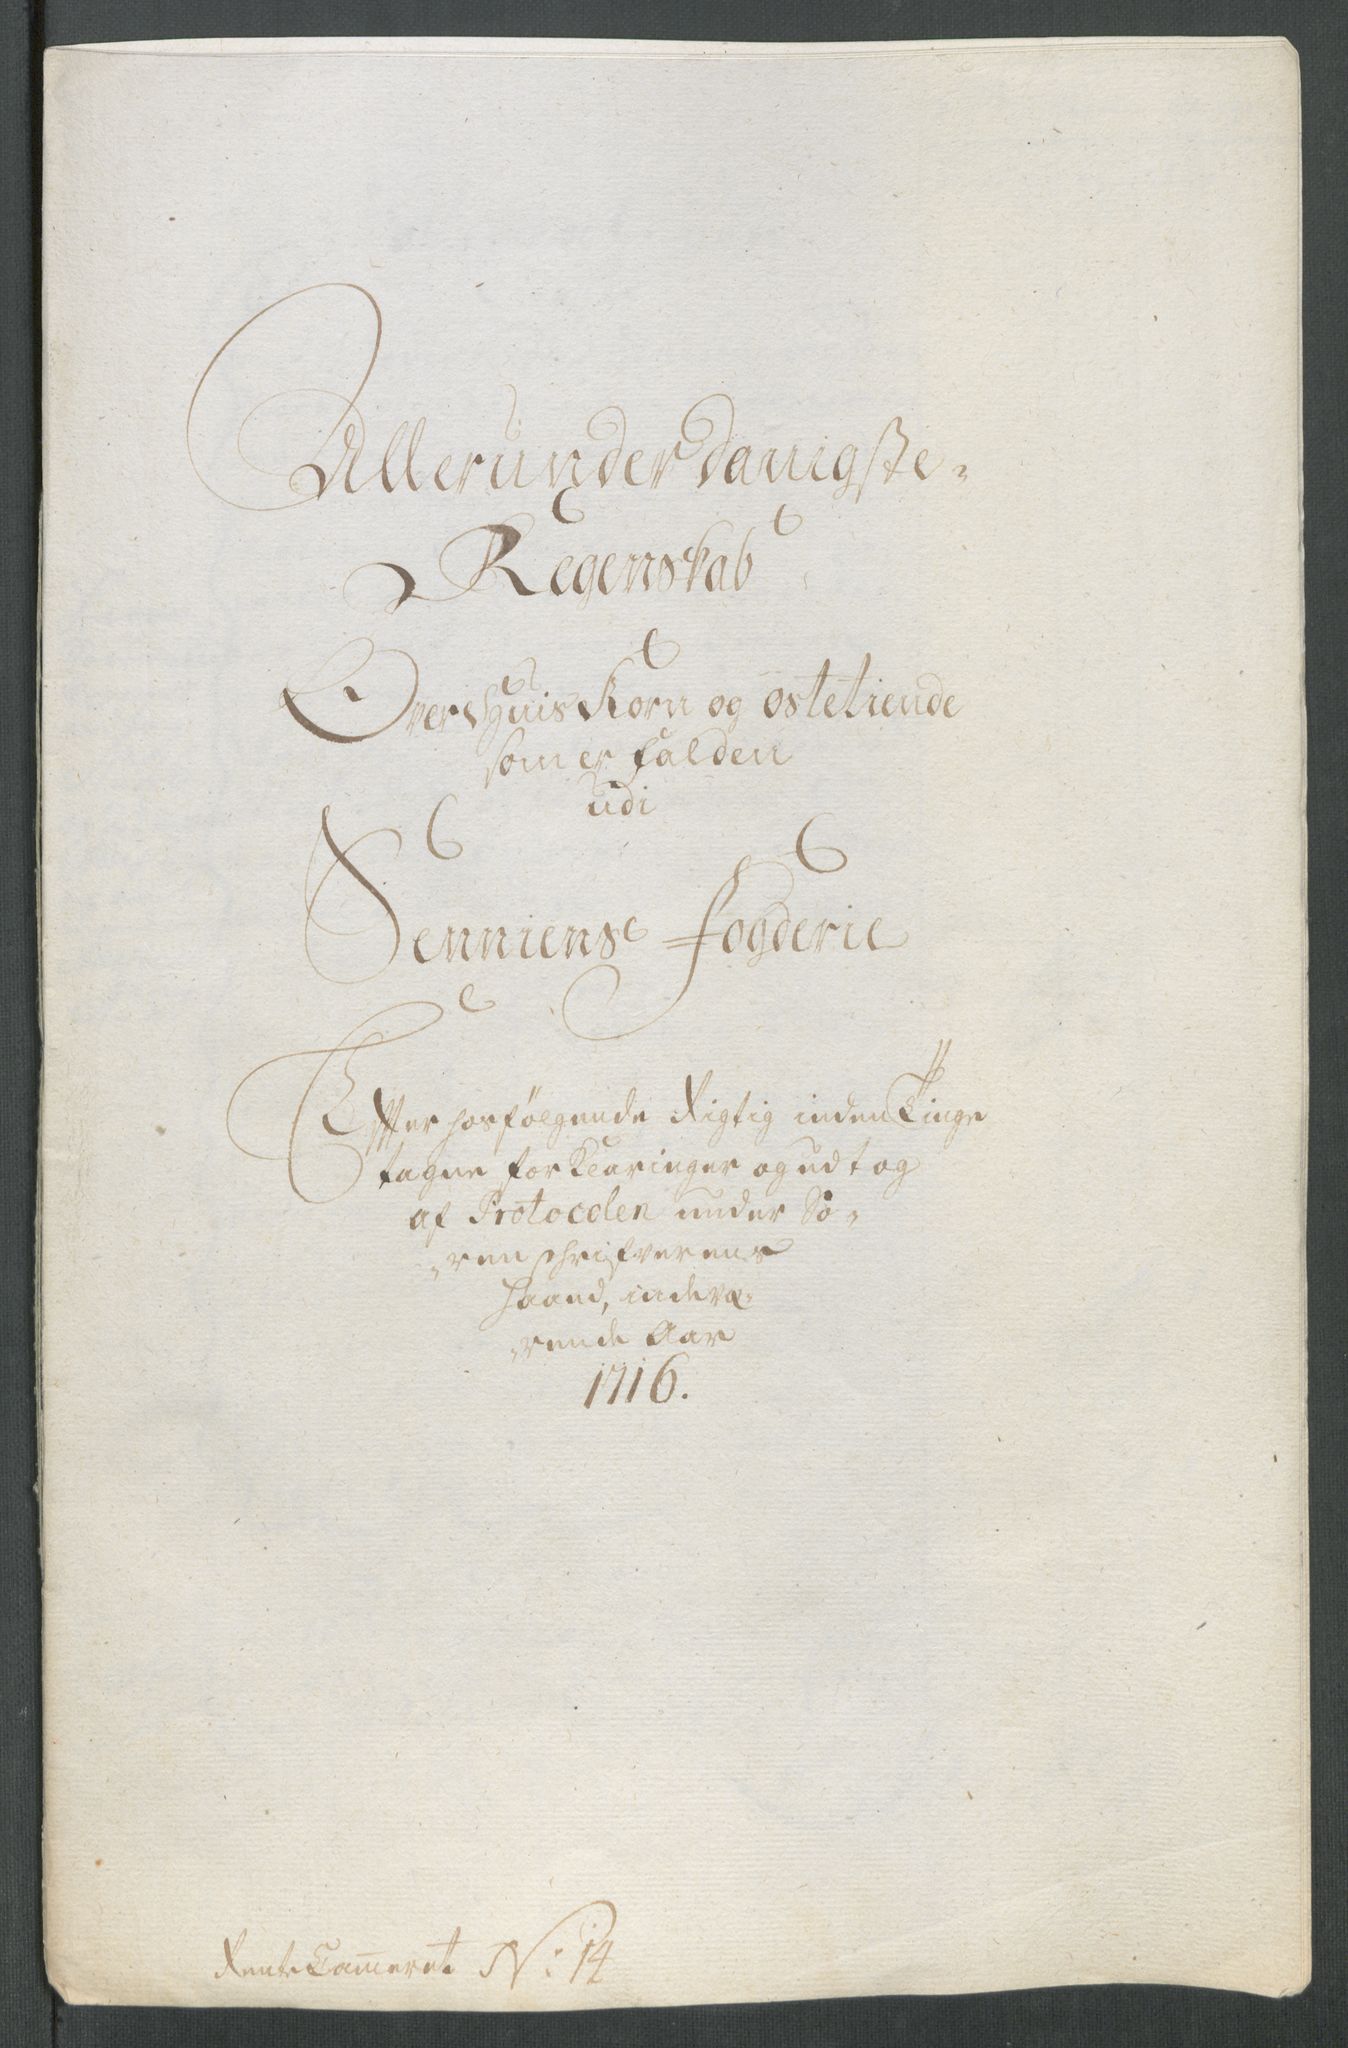 Allerunderdanigste
Regenskab
Over Huis Korn og ostetiende
som er falden
udi
Senniens fogderie
Effter hosfölgende Rigtig inden Tinge
tagne forklaringer og udtog
af Protocolen under So=
=renschrifverens
Haand, indevæ=
=rende Aar
1716.
Rente Cam̄eret N: 14